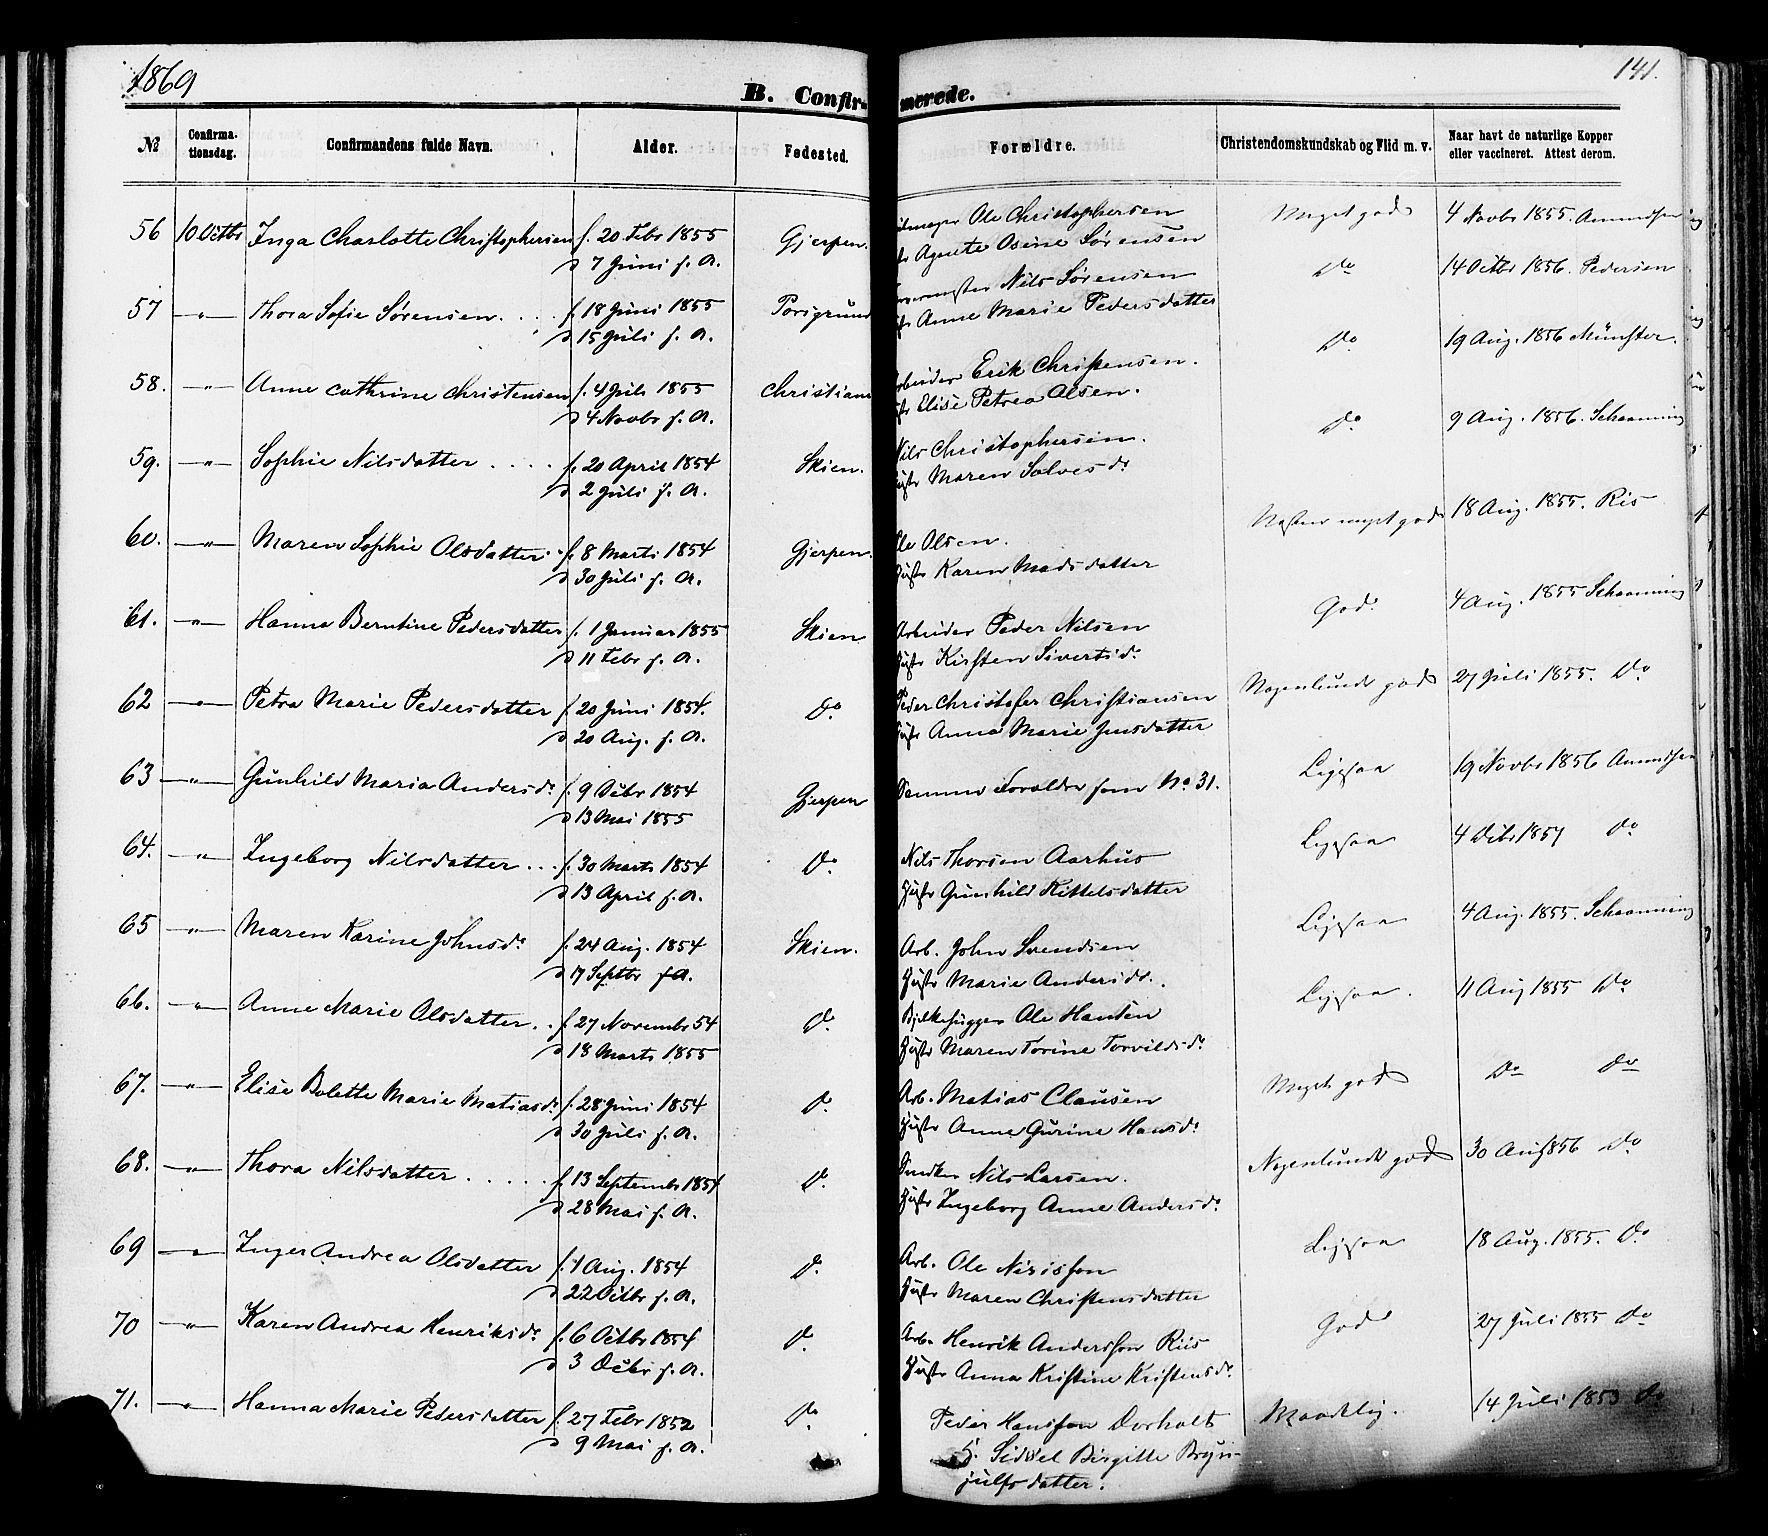 1869
141.
B. Confirmerede.
№ Confirmationsdag. Confirmandens fulde Navn. Alder. Fødested. Forældre. Christendomskundskab og Flid m. v. Naar havt de naturlige Kopper eller vaccineret. Attest derom.
56 10 Octbr Inga Charlotte Christophersen f. 20 Febr 1855 Gjerpen. Ole Christophersen Meget god 4 Novbr 1855. Amundsen
d 7 Juni s. A. Agnete Osine Sørensen
57 -"- Thora Sofie Sørensen. . . . f. 18 Juni 1855 Porsgrund Nils Sørensen Do 14 Octbr 1856. Pedersen
d 15 Juli s. A. Anne Marie Pedersdatter
58. -"- Anne Cathrine Christensen f. 4 Juli 1855 Christians Arbeider Erik Christensen. Do 19 Aug. 1856 Münster.
d 4 Novbr s. A. Elise Petrea Olsen.
59. -"- Sophie Nilsdatter . . . . f. 20 April 1854 Skien. Nils Christophersen. Do 9 Aug. 1856. Schaanning
d 2 Juli s. A. Hustr Maren Solves d.
60. -"- Maren Sophie Olsdatter . f. 8 Marts 1854 Gjerpen. Ole Olsen. Næsten meget god 18 Aug. 1855. Riis
d 30 Juli s. A. Hustr Karen Madsdatter
61. -"- Hanna Berntine Pedersdatter f. 1 Januar 1855 Skien Arbeider Peder Nilsen God. 4 Aug. 1855 Schaanning
d 11 Febr s. A. Hustr Kirsten Sivertsd.
62 -"- Petra Marie Pedersdatter f. 20 Juni 1854. Do Peder Christofer Christiansen Nogenlunde god 27 Juli 1855. Do
d 20 Aug. s. A. Hustr Anna Marie Jensdatter
63 -"- Gunhild Maria Andersd. f. 9 Decbr 1854 Gjerpen Samme Forældre som No 31. Ligesaa 19 Novbr 1856 Amundsen
d 13 Mai 1855
64. -"- Ingeborg Nilsdatter . . . f. 30 Marts 1854 Do. Nils Thorsen Aarhus Ligesaa 4 Octbr 1857 Do
d 13 April s. A. Hustr Gunhild Kittelsdatter
65 -"- Maren Karine Johnsd. f. 24 Aug. 1854 Skien. Arb. John Svendsen Ligesaa 4 Aug. 1855. Schaanning
d 17 Septbr s A. Hustr Marie Andersd.
66. -"- Anne Marie Olsdatter . . f. 27 Novembr 54 Do. Bjelkehugger Ole Hansen Ligesaa. 11 Aug 1855 Do
d 18 Marts 1855 Hustr Maren Torine Torvildsd.
67. -"- Elise Bolette Marie Matiasd. f. 28 Juni 1854 Do. Arb. Matias Clausen Meget god Do Do
d 30 Juli s. A. Hustr Anne Gurine Hansd.
68. -"- Thora Nilsdatter . . . . . f. 13 Septembr 1854 Do. Snedker Nils Larsen. Nogenlunde god 30 Aug 1856 Do
d 28 Mai s. A. Hustr Ingeborg Anne Andersd.
69 -"- Inger Andrea Olsdatter f. 1 Aug. 1854 Do. Arb. Ole Nirisson Ligesaa 18 Aug. 1855. Do
d 22 Octbr s. A. Hustr Maren Christensdatter
70 -"- Karen Andrea Henriksd. f. 6 Octbr 1854 Do. Arb. Henrik Andersson Riis God 27 Juli 1855 Do
d 3 Decbr s. A. Hustr Anna Kristine Kristensd.
71. -"- Hanna Marie Pedersdatter f. 27 Febr 1852 Do. Peder Hansson Dorholt Maadelig. 14 Juli 1853 Do
d 9 Mai s. A. H. Sidsel Birgitte Bryn-
julfsdatter.